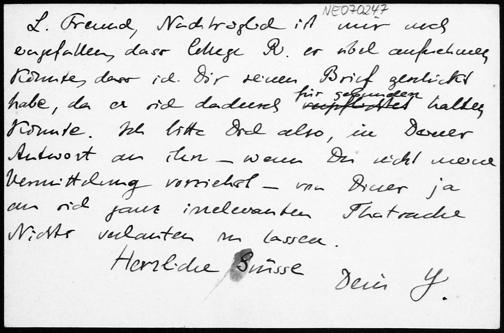 NE070247
L. Freund, Nachträglich ist mir noch
eingefallen, dass College R. es übel aufnehmen
könnte, dass ich Dir seinen Brief geschickt
habe, da er sich dadurch für gebunden halten
könnte. Ich bitte Dich also, in Deiner
Antwort an ihn – wenn Du nicht meine
Vermittlung vorziehst – von dieser ja
an sich ganz irrelevanten Thatsache
Nichts verlauten zu lassen.
Herzliche Grüsse
Dein